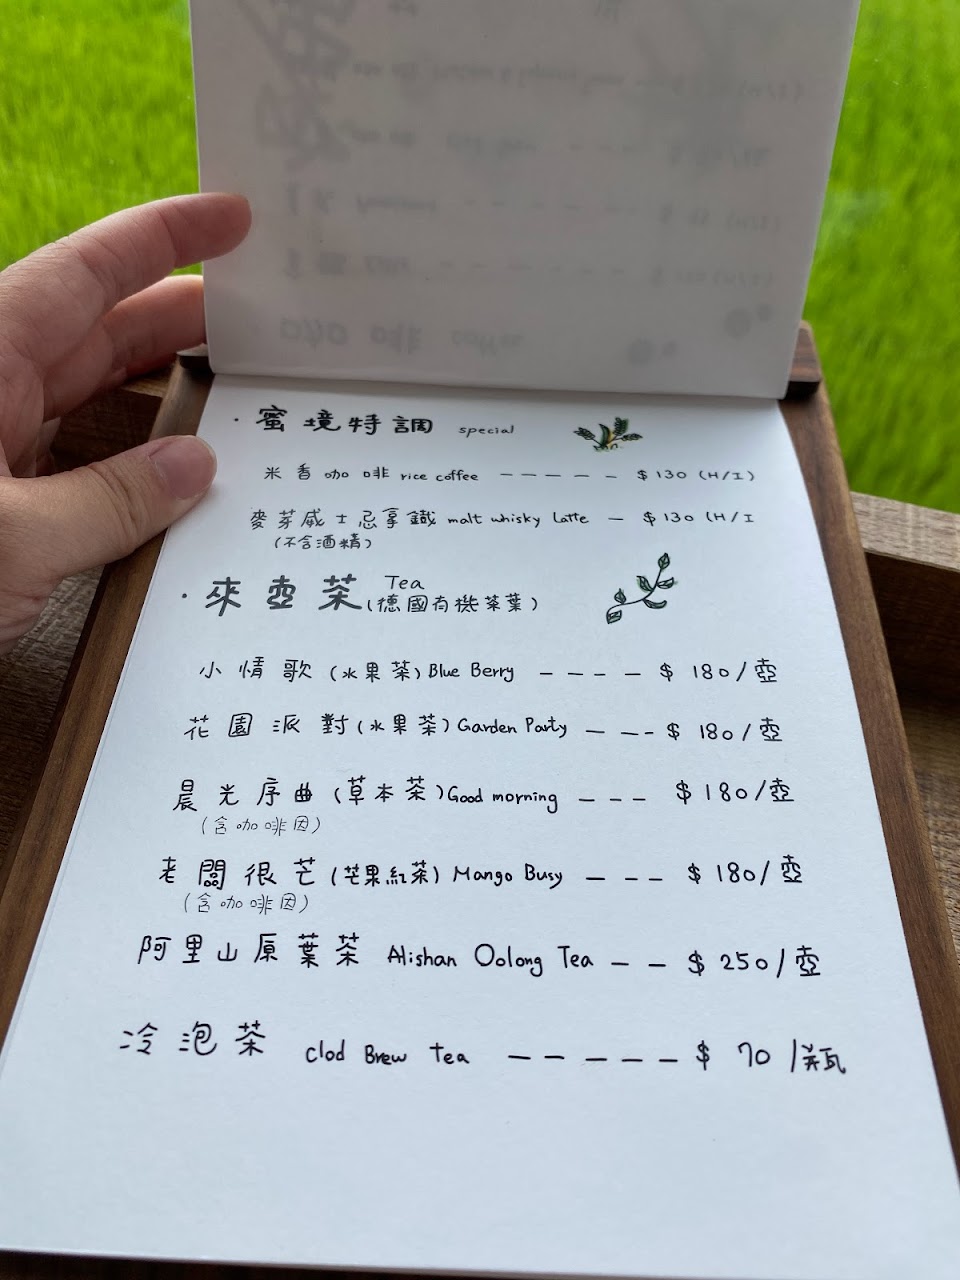 · 蜜境特調 special
米香咖啡 rice coffee ————— $130 (H/I)
麥芽威士忌拿鐵 malt whisky Latte — $130 (H/I
(不含酒精)
· 來壺茶 Tea
(德國有機茶葉)
小情歌 (水果茶) Blue Berry ———— $180/壺
花園派對 (水果茶) Garden Party ——— $180/壺
晨光序曲 (草本茶) Good morning ——— $180/壺
(含咖啡因)
老闆很芒 (芒果紅茶) Mango Busy ——— $180/壺
(含咖啡因)
阿里山原葉茶 Alishan Oolong Tea —— $250/壺
冷泡茶 Clod Brew tea ————— $70/瓶